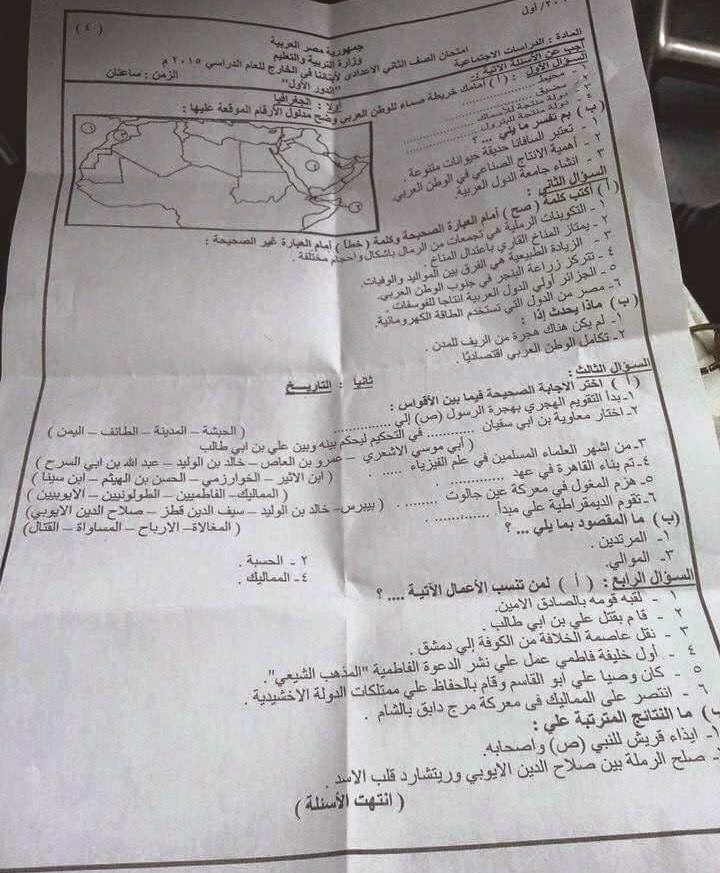 ٢٠١/ أول
( ٤ )
جمهورية مصر العربية
وزارة التربية والتعليم
امتحان الصف الثاني الاعدادي لأبنائنا في الخارج للعام الدراسي ٢٠١٥ م
المادة : الدراسات الاجتماعية
"الدور الأول"
الزمن : ساعتان
أجب عن الأسئلة الآتية :-
أولا : الجغرافيا
السؤال الأول : ( أ ) أمامك خريطة صماء للوطن العربي وضح مدلول الأرقام الموقعة عليها :
١ - محيط ................
٢ - مضيق ................
٣ - دولة منتجة للأسماك ................
٤ - دولة منتجة للبترول ................
(ب) بم تفسر ما يلي ... ؟
١ - تعتبر السافانا حديقة حيوانات متنوعة .
٢ - أهمية الانتاج الصناعي في الوطن العربي.
٣ - انشاء جامعة الدول العربية.
السؤال الثاني :
( أ ) أكتب كلمة ( صح ) أمام العبارة الصحيحة وكلمة ( خطأ ) أمام العبارة غير الصحيحة :
١ - التكوينات الرملية هي تجمعات من الرمال باشكال واحجام مختلفة .
٢ - يمتاز المناخ القاري باعتدال المناخ .
٣ - الزيادة الطبيعية هي الفرق بين المواليد والوفيات.
٤ - تتركز زراعة البنجر في جنوب الوطن العربي.
٥ - الجزائر أولي الدول العربية انتاجا للفوسفات .
٦ - مصر من الدول التي تستخدم الطاقة الكهرومائية.
(ب ) ماذا يحدث إذا :
١ - لم يكن هناك هجرة من الريف للمدن .
٢- تكامل الوطن العربي اقتصاديًا .
ثانيا : التاريـــخ
السؤال الثالث :
( أ ) اختر الاجابة الصحيحة فيما بين الأقواس :
١-بدأ التقويم الهجري بهجرة الرسول (ص) إلي ............ ( الحبشة – المدينة – الطائف – اليمن )
٢- اختار معاوية بن أبي سفيان ............ في التحكيم ليحكم بينه وبين علي بن ابي طالب
( أبي موسي الاشعري – عمرو بن العاص – خالد بن الوليد – عبد الله بن ابي السرح )
٣-من اشهر العلماء المسلمين في علم الفيزياء ...... ( ابن الاثير – الخوارزمي – الحسن بن الهيثم – ابن سينا )
٤-تم بناء القاهرة في عهد ............ ( المماليك– الفاطميين – الطولونيين – الايوبيين )
٥- هزم المغول في معركة عين جالوت ........ ( بيبرس– خالد بن الوليد – سيف الدين قطز – صلاح الدين الايوبي)
٦- تقوم الديمقراطية علي مبدأ ............ ( المغالاة– الارباح – المساواة – القتال)
(ب) ما المقصود بما يلي ... ؟
١- المرتدين .
٢ - الحسبة .
٣- الموالي.
٤- المماليك .
السؤال الرابع : ( أ ) لمن تنسب الأعمال الآتية .... ؟
١ - لقبه قومه بالصادق الامين.
٢ - قام بقتل علي بن ابي طالب .
٣ - نقل عاصمة الخلافة من الكوفة إلي دمشق .
٤ - أول خليفة فاطمي عمل علي نشر الدعوة الفاطمية "المذهب الشيعي".
٥ - كان وصيا علي ابو القاسم وقام بالحفاظ علي ممتلكات الدولة الاخشيدية .
٦ - انتصر على المماليك فى معركة مرج دابق بالشام .
ب) ما النتائج المترتبة علي :
١- ايذاء قريش للنبي (ص) واصحابه.
- صلح الرملة بين صلاح الدين الايوبي وريتشارد قلب الاسد .
( انتهت الأسئلة )